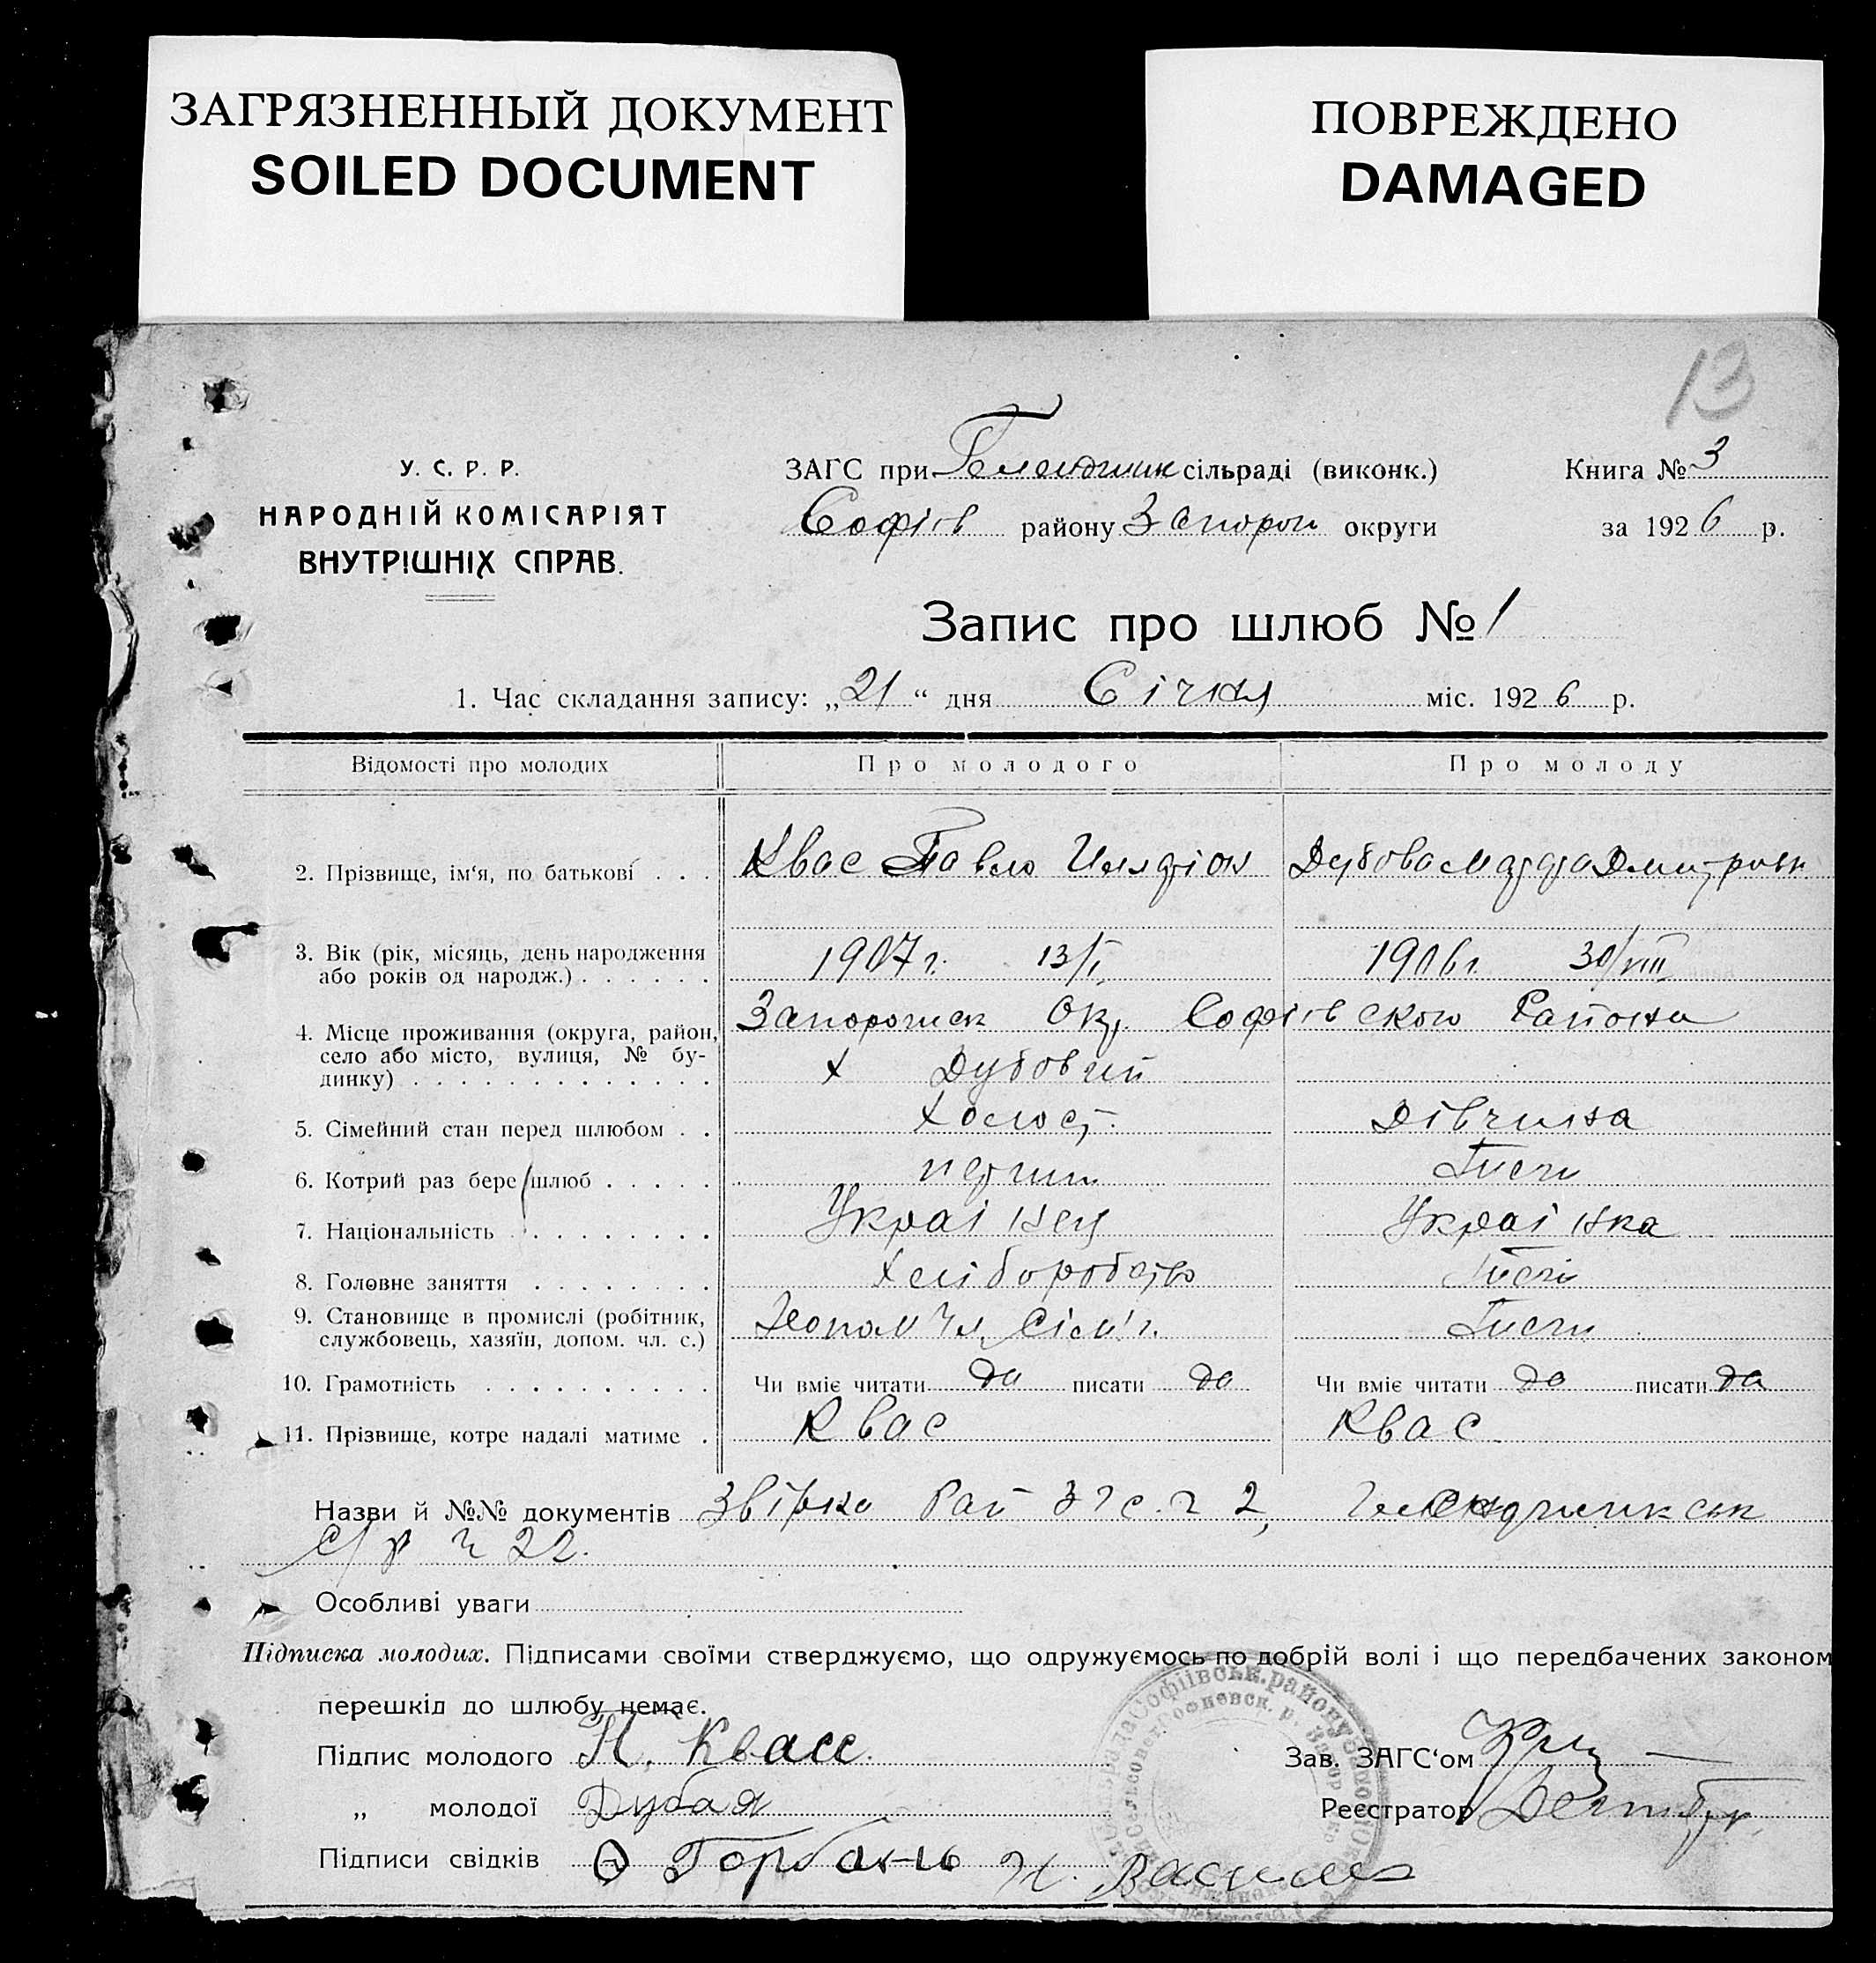 ЗАГРЯЗНЕННЫЙ ДОКУМЕНТ
SOILED DOCUMENT
ПОВРЕЖДЕНО
DAMAGED
13
У. С. Р. Р.
НАРОДНІЙ КОМІСАРІЯТ
ВНУТРІШНІХ СПРАВ.
ЗАГС при сільраді (виконк.) Книга № 3
Софіїв району Запорож округи за 1926 р.
Запис про шлюб № 1
1. Час складання запису: „21“ дня Січня міс. 1926 р.
Відомості про молодих Про молодого Про молоду
2. Прізвище, ім‘я, по батькові . . . Квас Павло Дубова Дмитровн
3. Вік (рік, місяць, день народження
або років од народж.) . . . . . . 1907 г. 13/I 1906 г. 30/VIII
4. Місце проживання (округа, район,
село або місто, вулиця, № бу-
динку) . . . . . . . . . . . . . Запорожск Окр. Софіївского Района
х Дубовий
5. Сімейний стан перед шлюбом . . Холост. Дівчина
6. Котрий раз бере шлюб . . . . . перший
7. Національність . . . . . . . . Украінец Украінка
8. Головне заняття . . . . . . . Хліборобство
9. Становище в промислі (робітник,
службовець, хазяїн, допом. чл. с.) Чл. Сім'ї.
10. Грамотність . . . . . . . . . . Чи вміє читати да писати да Чи вміє читати да писати да
11. Прізвище, котре надалі матиме . Квас Квас
Назви й №№ документів Рай 2,
с/р ч 22.
Особливі уваги
Підписка молодих. Підписами своїми стверджуємо, що одружуємось по добрій волі і що передбачених законом
перешкід до шлюбу немає.
Підпис молодого Квасс. Зав. ЗАГС‘ом
„ молодої Дубая Реєстратор
Підписи свідків Горбань